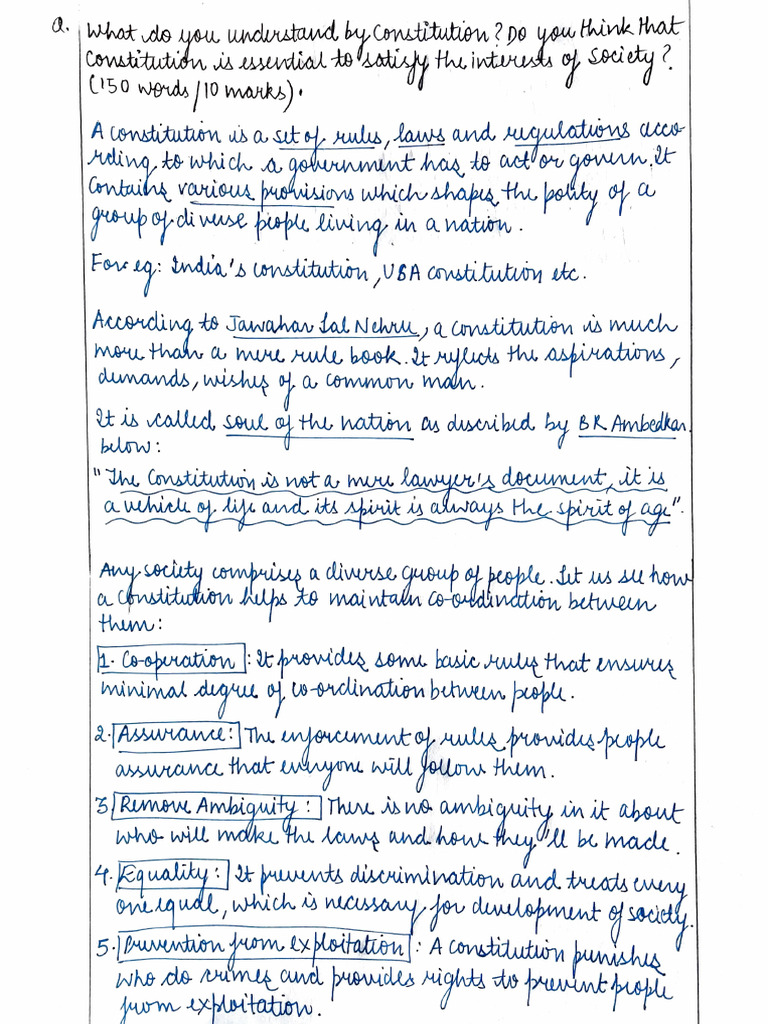 Q. What do you understand by Constitution? Do you think that
Constitution is essential to satisfy the interests of society?
(150 words/10 marks).
A constitution is a set of rules, laws and regulations acco-
rding to which a government has to act or govern. It
contains various provisions which shapes the polity of a
group of diverse people living in a nation.
For eg: India's constitution, USA constitution etc.
According to Jawahar Lal Nehru, a constitution is much
more than a mere rule book. It reflects the aspirations,
demands, wishes of a common man.
It is called soul of the nation as described by BR Ambedkar
below:
"The Constitution is not a mere lawyer's document, it is
a vehicle of life and its spirit is always the spirit of age".
Any society comprises a diverse group of people. Let us see how
a constitution helps to maintain co-ordination between
them:
1. Co-operation: It provides some basic rules that ensures
minimal degree of co-ordination between people.
2. Assurance: The enforcement of rules provides people
assurance that everyone will follow them.
3. Remove Ambiguity: There is no ambiguity in it about
who will make the laws and how they'll be made.
4. Equality: It prevents discrimination and treats every
one equal, which is necessary for development of society.
5. Prevention from exploitation: A constitution punishes
who do crimes and provides rights to prevent people
from exploitation.